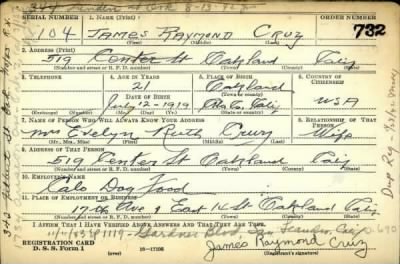 344 Linden St Oak 8-13-
SERIAL NUMBER 1. NAME (Print) ORDER NUMBER
104 JAMES RAYMOND CRUZ 732
(First) (Middle) (Last)
2. ADDRESS (Print)
519 Center St Oakland Calif
(Number and street or R. F. D. number) (Town) (County) (State)
3. TELEPHONE 4. AGE IN YEARS 5. PLACE OF BIRTH 6. COUNTRY OF CITIZENSHIP
21 Oakland
DATE OF BIRTH (Town or county)
July-12-1919 Ala Co. Calif USA
(Exchange) (Number) (Mo.) (Day) (Yr.) (State or country)
7. NAME OF PERSON WHO WILL ALWAYS KNOW YOUR ADDRESS 8. RELATIONSHIP OF THAT PERSON
Mrs Evelyn Ruth Cruz Wife
(Mr., Mrs., Miss) (First) (Middle) (Last)
9. ADDRESS OF THAT PERSON
519 Center St Oakland Calif
(Number and street or R. F. D. number) (Town) (County) (State)
10. EMPLOYER'S NAME
Calo Dog Food
11. PLACE OF EMPLOYMENT OR BUSINESS
Ave & East St Oakland Calif
(Number and street or R. F. D. number) (Town) (County) (State)
I AFFIRM THAT I HAVE VERIFIED ABOVE ANSWERS AND THAT THEY ARE TRUE.
1119 Gardner Blvd, San Leandro, Calif
REGISTRATION CARD
D. S. S. Form 1 16-17105 James Raymond Cruz